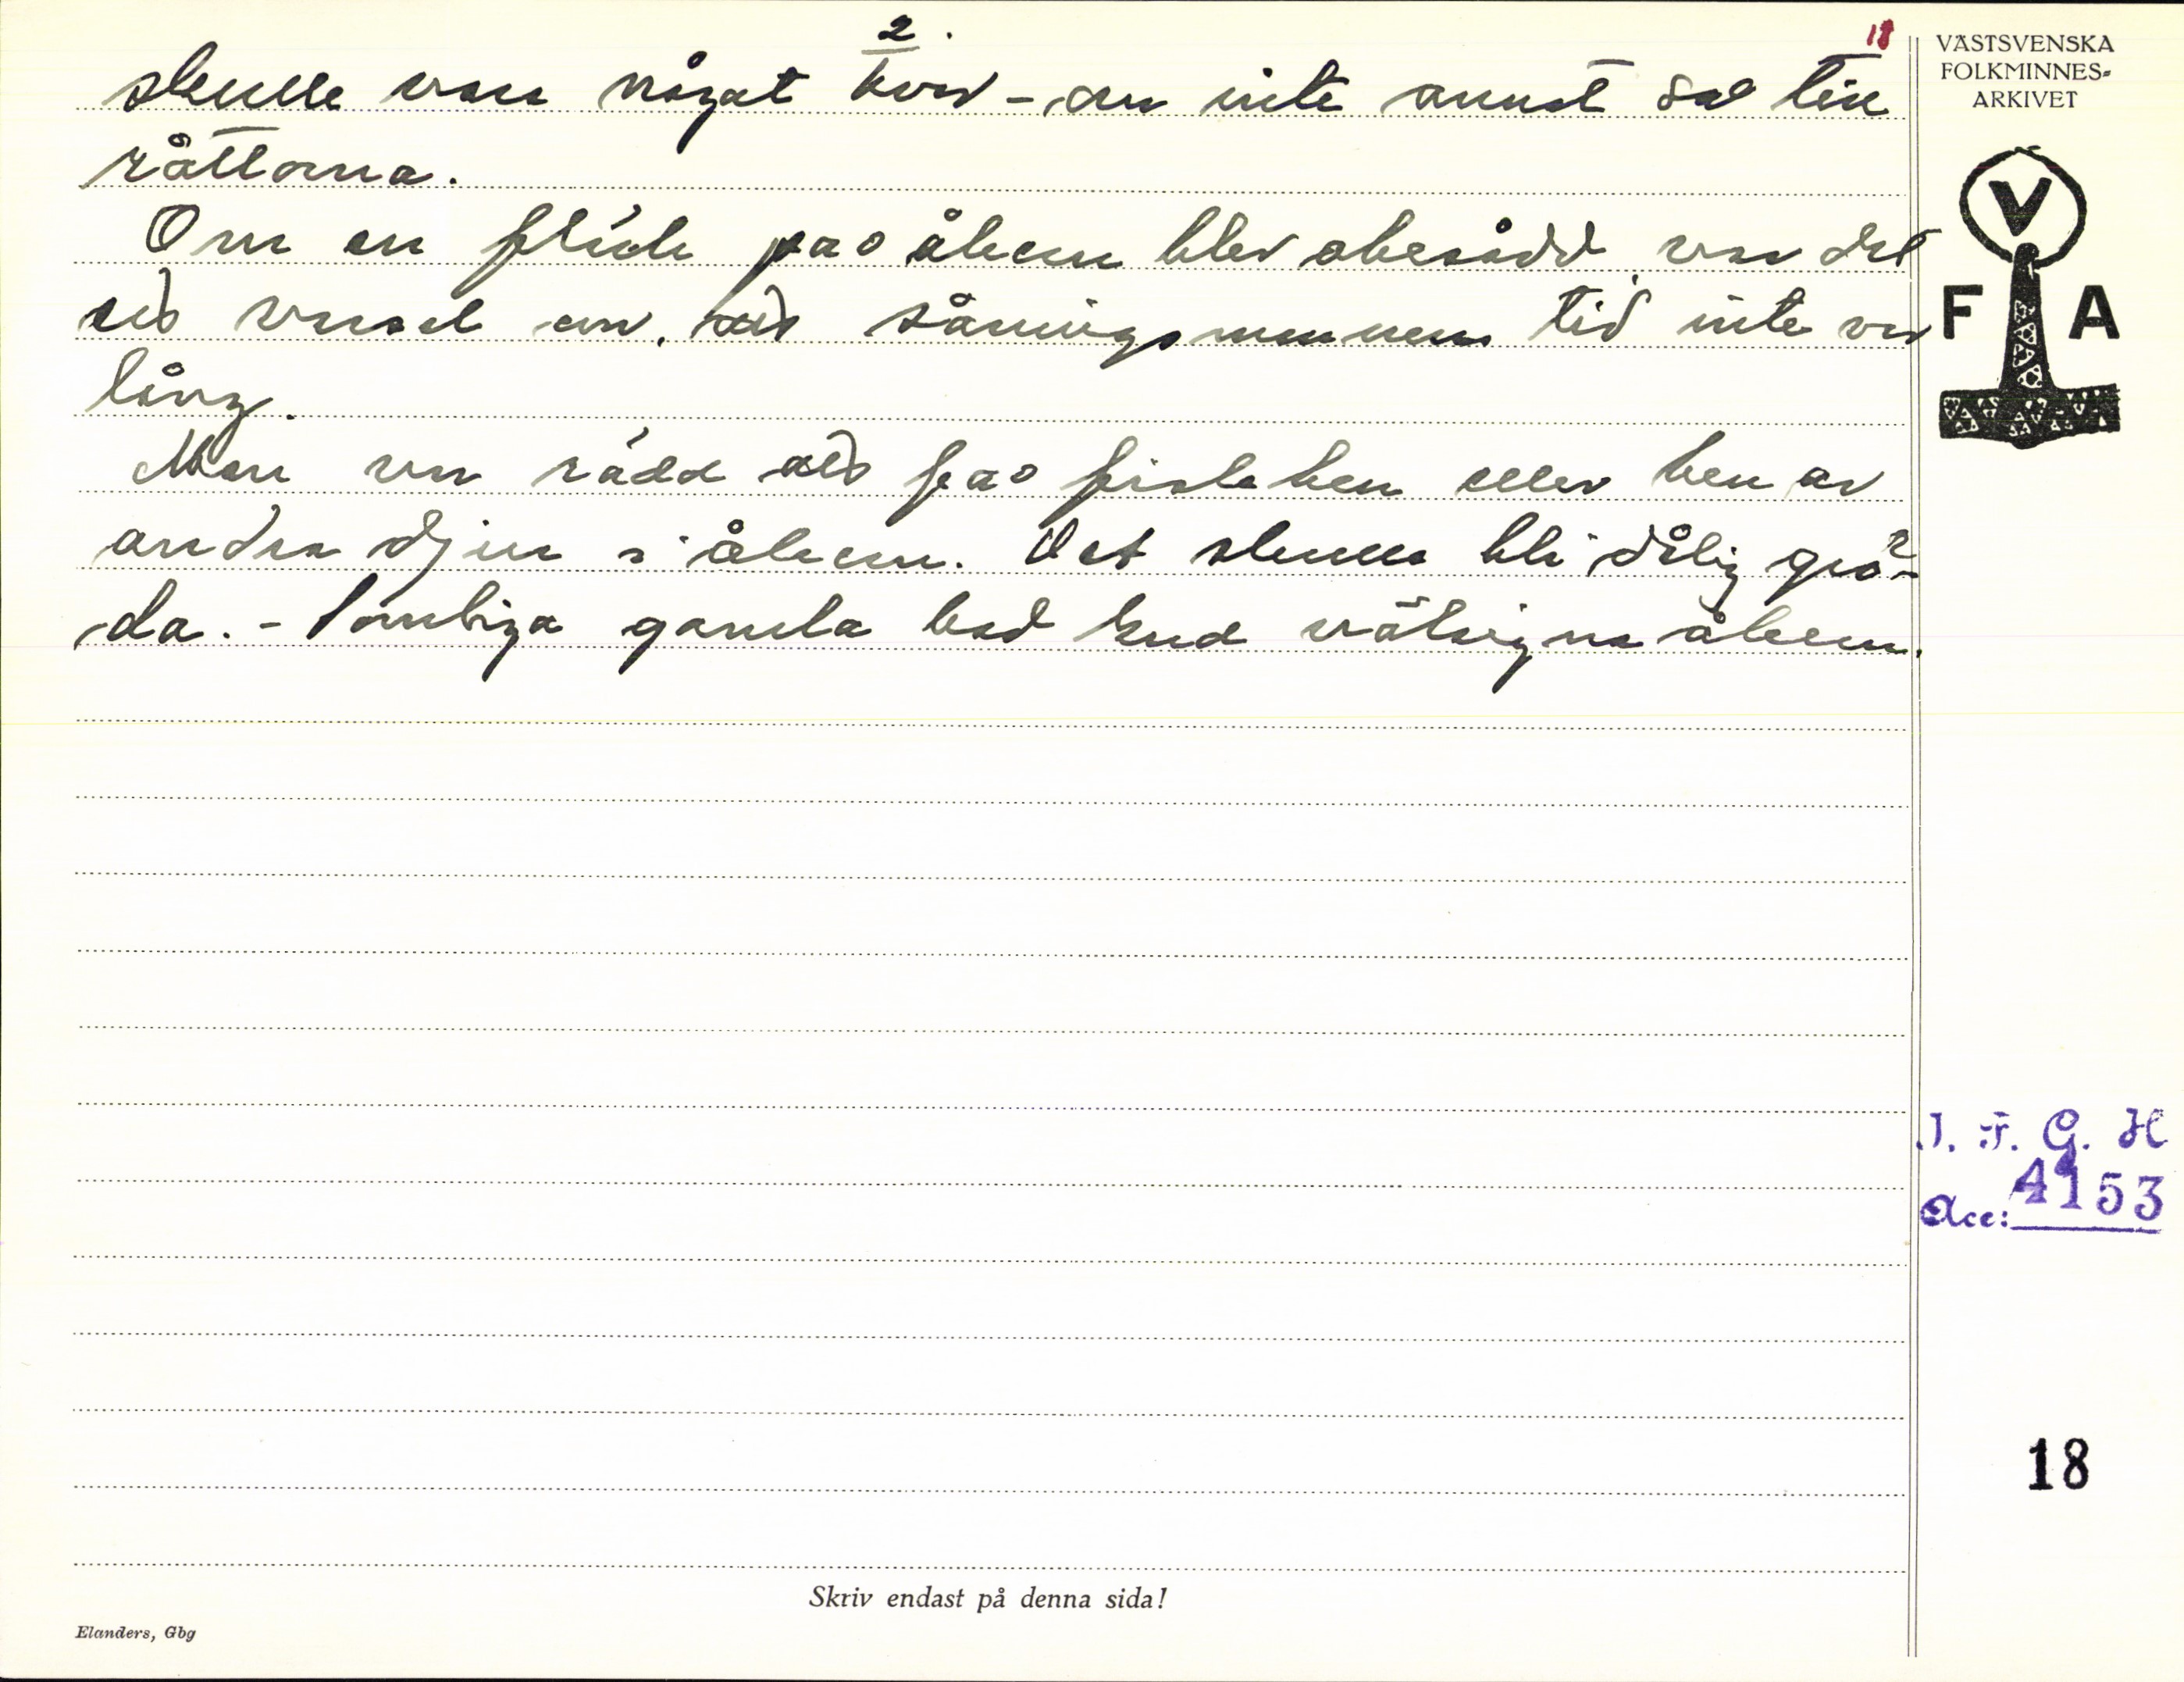 2.
18
skulle vara något kvar - om inte annat så till
råttorna.
Om en fläck på åkern blev obesådd var det
ett varsel om, att såningsmannens tid inte var
lång.
Man var rädd att få fiskben eller ben av
andra djur i åkern. Det skulle bli dålig grö-
da. - Somliga gamla bad Gud välsigna åkern.
VÄSTSVENSKA
FOLKMINNES-
ARKIVET
V
F A
I. F. G. H
Acc: 4153
18
Skriv endast på denna sida!
Elanders, Gbg